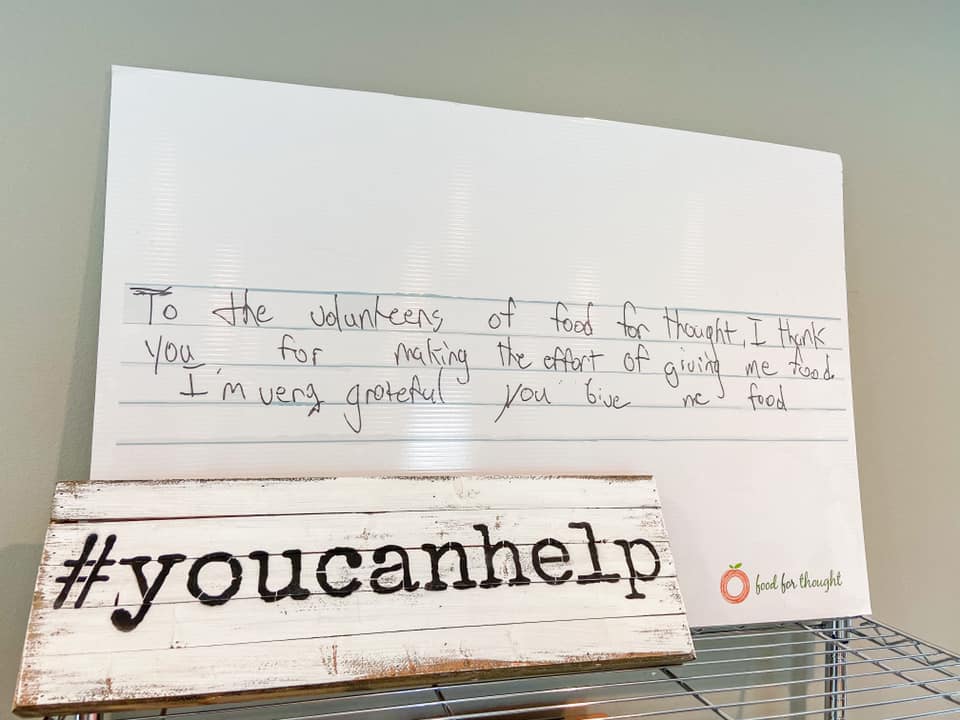 To the volunteers of food for thought, I thank
you for making the effort of giving me food.
I'm very grateful you give me food
#youcanhelp
food for thought